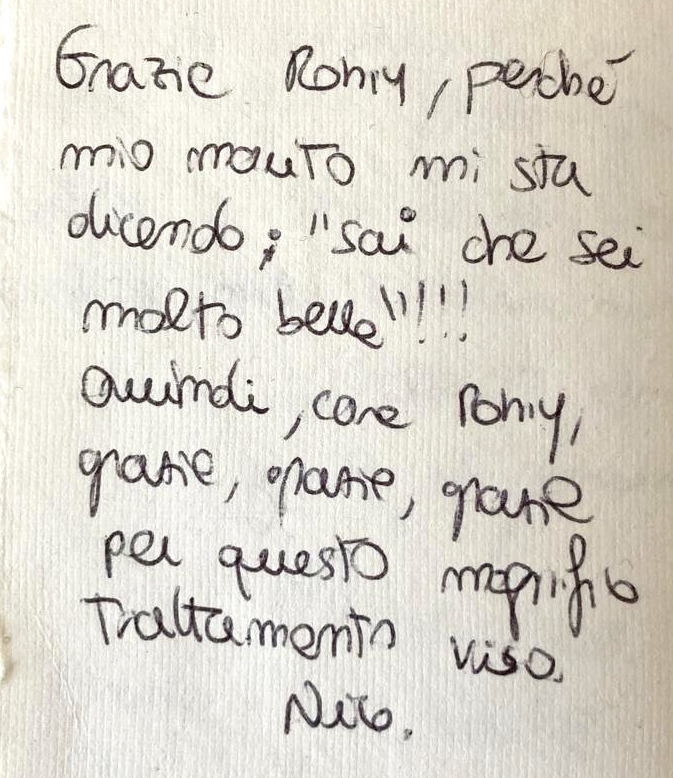 Grazie Romy, perché
mio marito mi sta
dicendo; "sai che sei
molto bella"!!!
Quindi, cara Romy,
grazie, grazie, grazie
per questo magnifico
Trattamento viso.